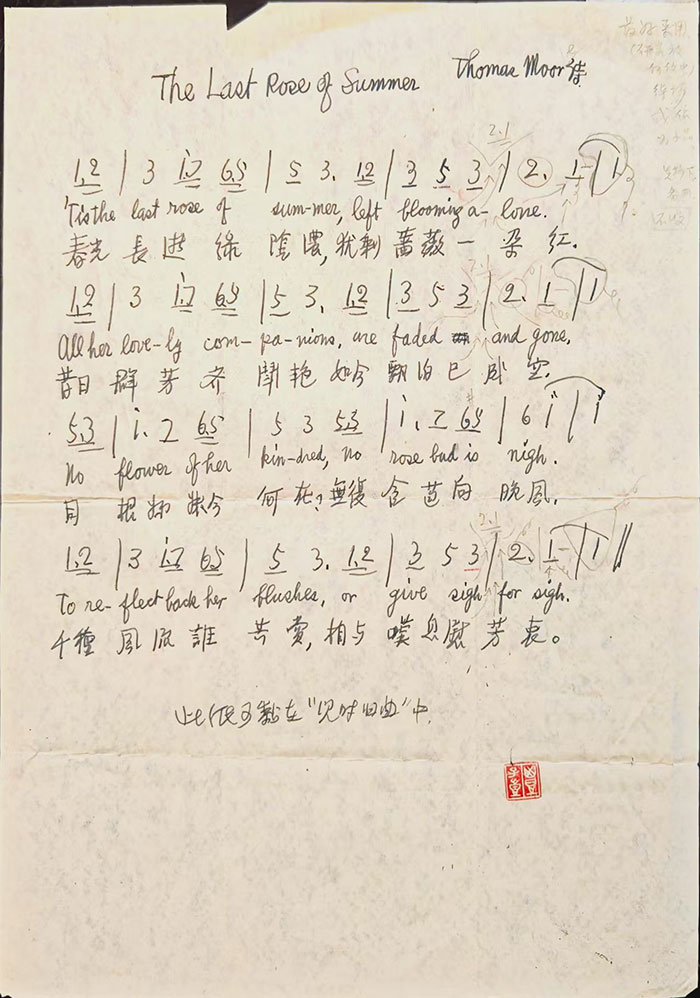 The Last Rose of Summer Thomas Moor
1̲2̲ | 3 i̲7̲ 6̲5̲ | 5̲ 3. 1̲2̲ | 3̲ 5̲ 3̲ | 2. 1- | 1
'Tis the last rose of sum-mer, left blooming a-lone.
春光長逝綠陰濃,猶剩薔薇一朵紅.
1̲2̲ | 3 i̲7̲ 6̲5̲ | 5̲ 3. 1̲2̲ | 3̲ 5 3̲ | 2. 1̲ | 1
All her love-ly com-pa-nions, are faded and gone,
昔日群芳齊鬪艳如今飄泊已成空.
5̲3̲ | i. 7 6̲5̲ | 5 3 5̲3̲ | i. 7 6̲5̲ | 6 i | i
No flower of her kin-dred, no rose bud is nigh.
同根姊妹今何在?無復含苞向晚風.
1̲2̲ | 3 i̲7̲ 6̲5̲ | 5̲ 3. 1̲2̲ | 3̲ 5 3̲ | 2. 1- | 1 ||
To re-flect back her blushes, or give sigh for sigh.
千種風流誰共賞,相与嘆息慰芳衷。
此假可黏在"兒时旧曲"中.
2.1
2.1
2.1